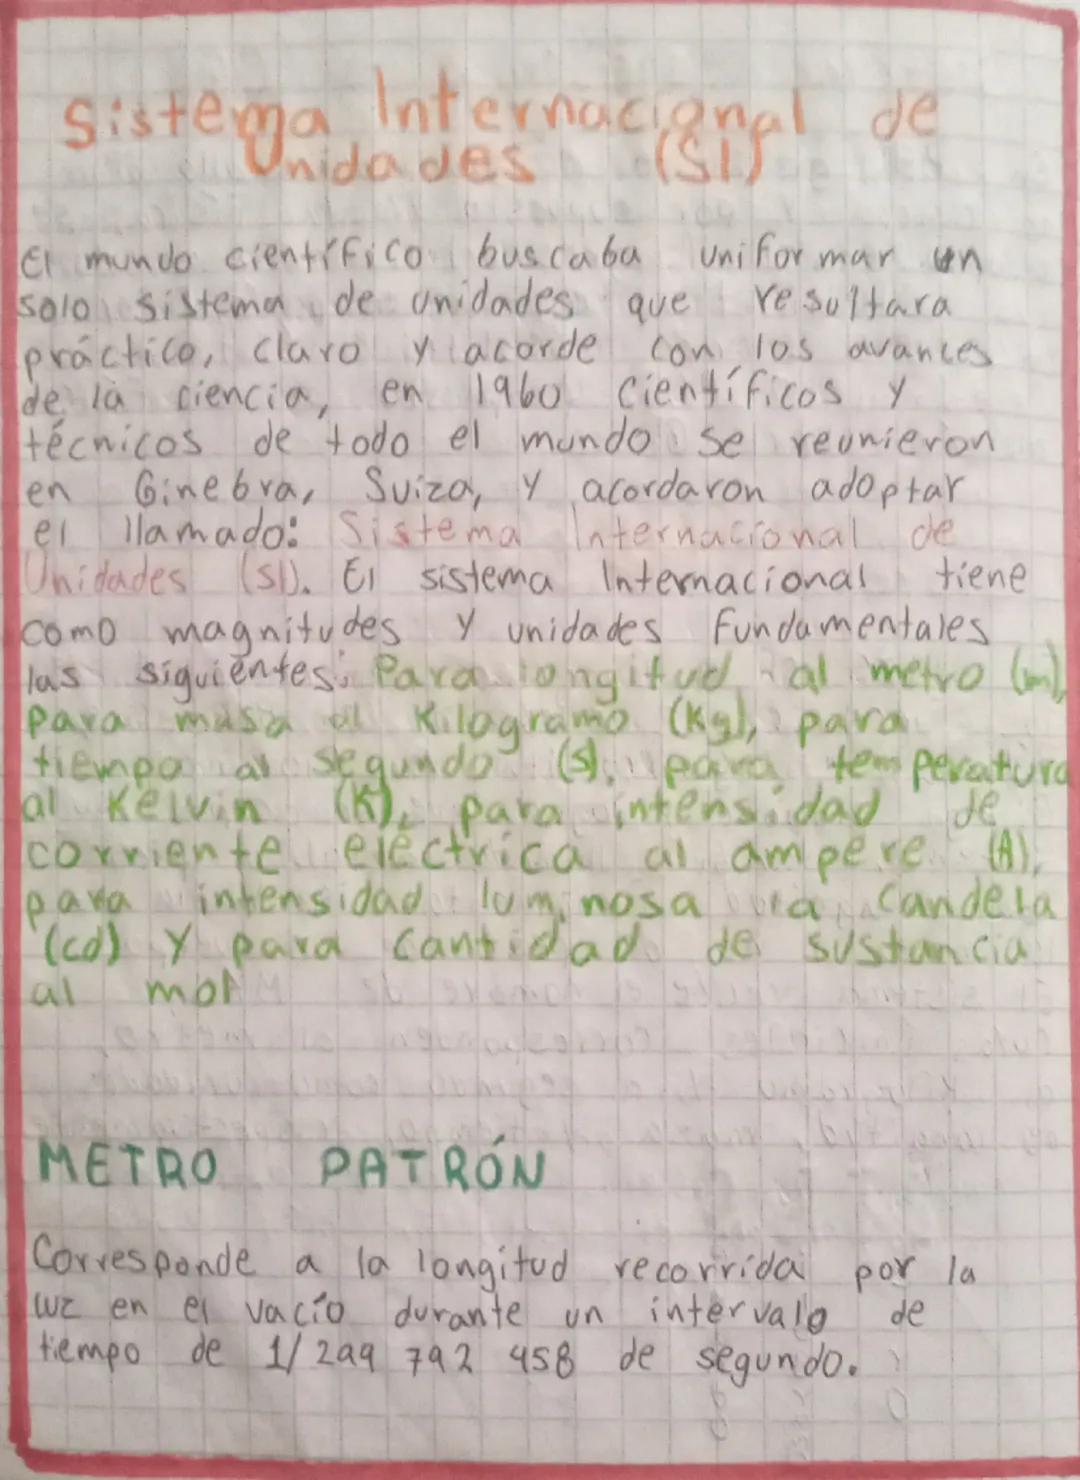 Sistema Internacional de
Unidades (SI)
El mundo científico buscaba uniformar un
solo sistema de unidades que resultara
práctico, claro y acorde con los avances
de la ciencia, en 1960 científicos y
técnicos de todo el mundo se reunieron
en Ginebra, Suiza, y acordaron adoptar
el llamado: Sistema Internacional de
Unidades (SI). El sistema Internacional tiene
como magnitudes y unidades fundamentales
las siguientes: Para longitud al metro (m),
para masa al Kilogramo (Kg), para
tiempo al segundo (s), para temperatura
al Kelvin (K), para intensidad de
corriente eléctrica al ampere (A),
para intensidad luminosa la Candela
(cd) y para Cantidad de sustancia
al mol
METRO PATRÓN
Corresponde a la longitud recorrida por la
luz en el vacío durante un intervalo de
tiempo de 1/299 792 458 de segundo.